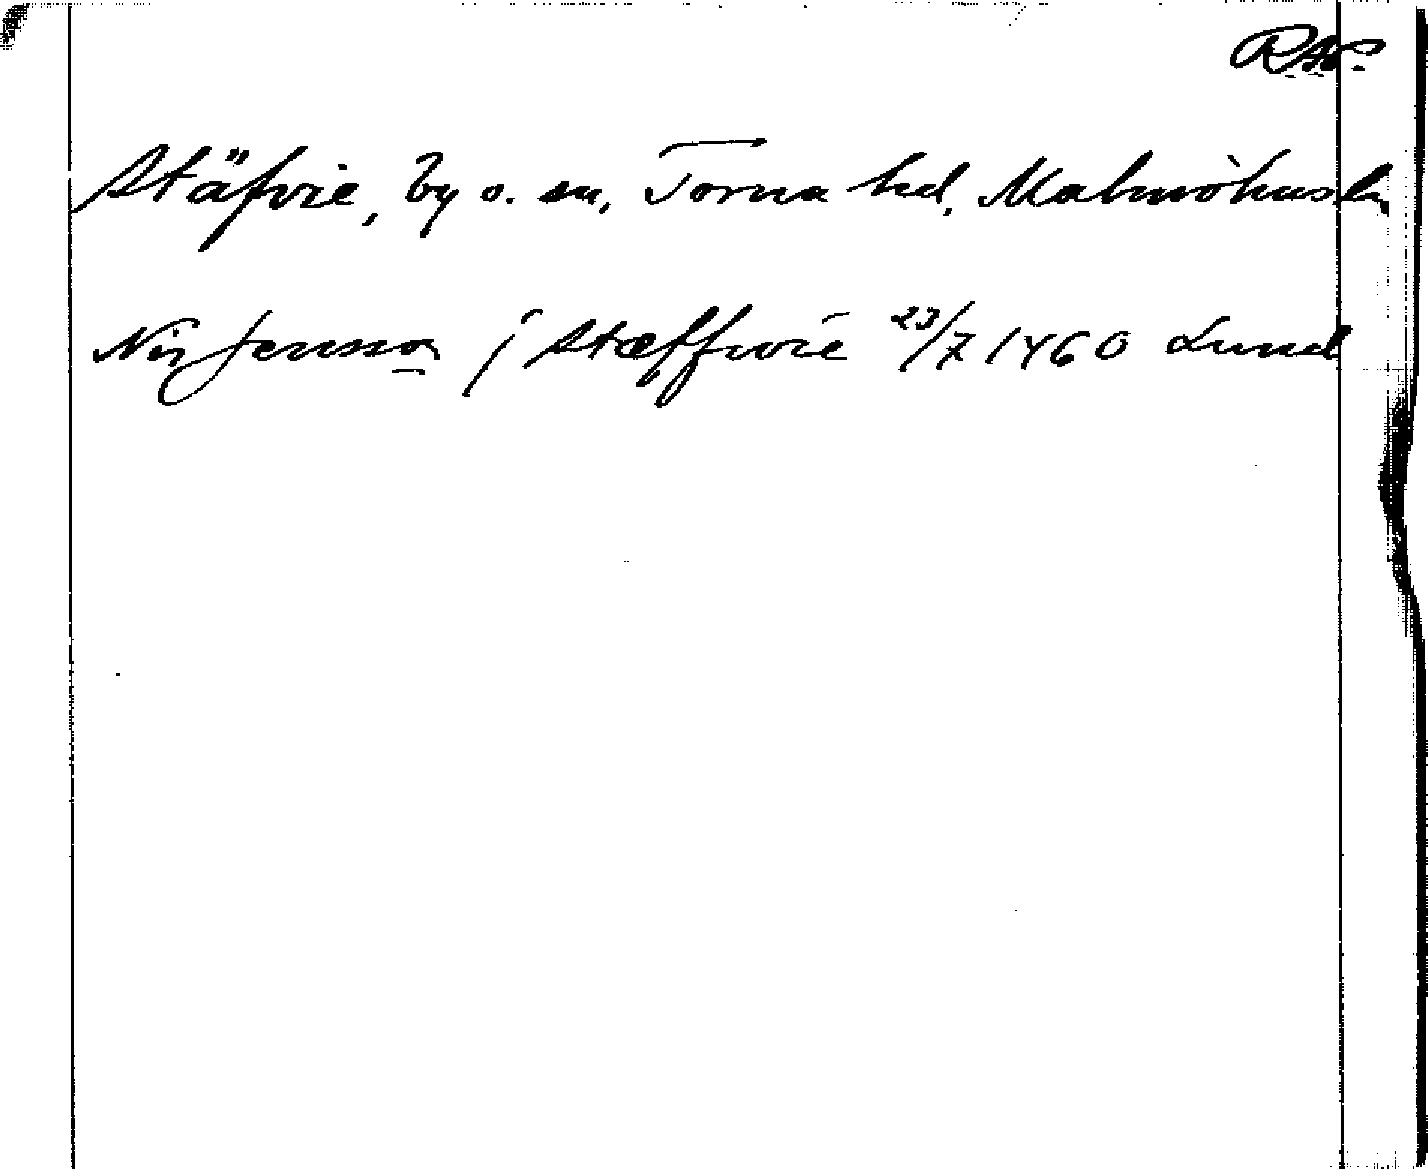 RAP.
Stäfvie, by o. sn, Torna hd, Malmöhus l.
Nis Jensson j Stæffwie 23/7 1460 Lund